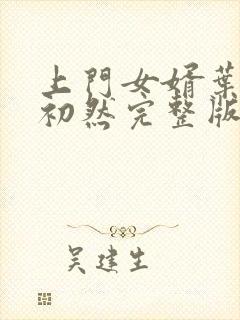 上門女婿葉
初然完整版
吴建生